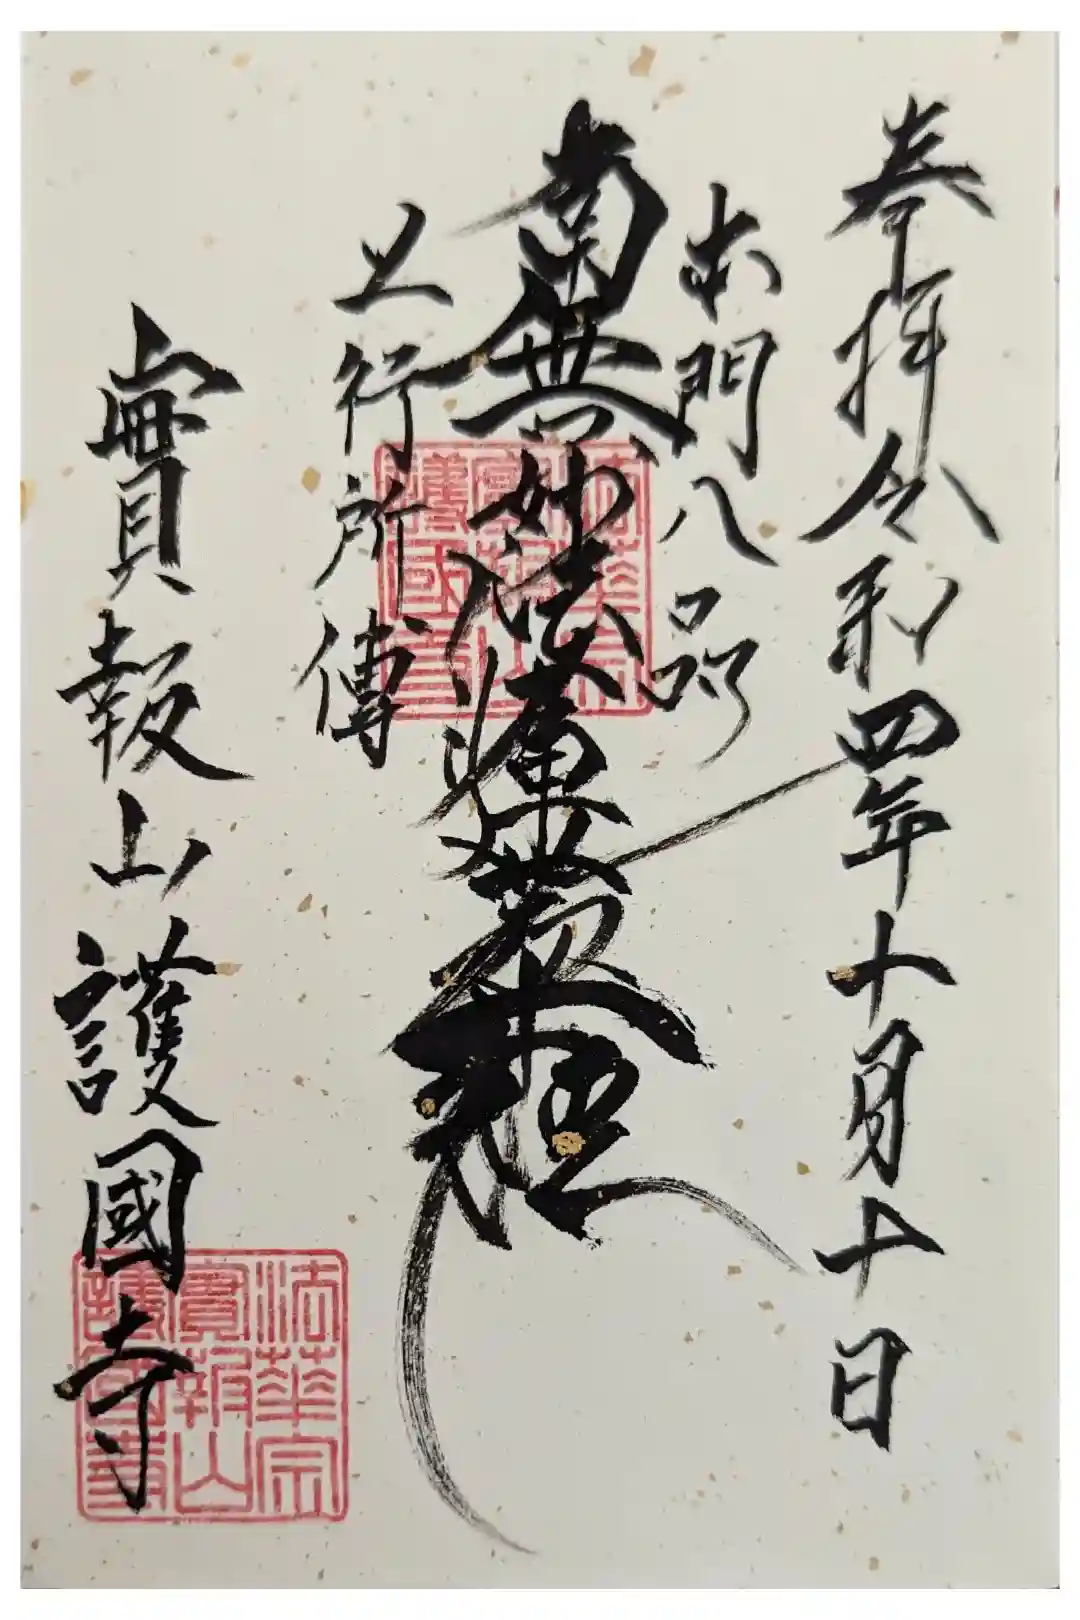 奉拝令和四年十月十日
本門八品
南無妙法蓮華経
上行所傳
實報山護國寺
法華宗
實報山
護國寺
法華宗
實報山
護國寺